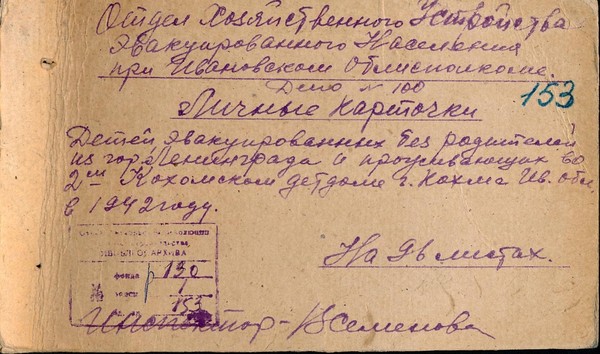 Отдел Хозяйственного Устройства
Эвакуированного Населения
при Ивановском Облисполкоме.
Дело № 100
153
Личные карточки
Детей, эвакуированных без родителей
из гор. Ленинграда и проживающих во
2ом Кохомском детдоме г. Кохма Ив. обл.
в 1942 году.
АРХИВА
фонд р 190
№ 1
153
На листах.
Инспектор - Семенова